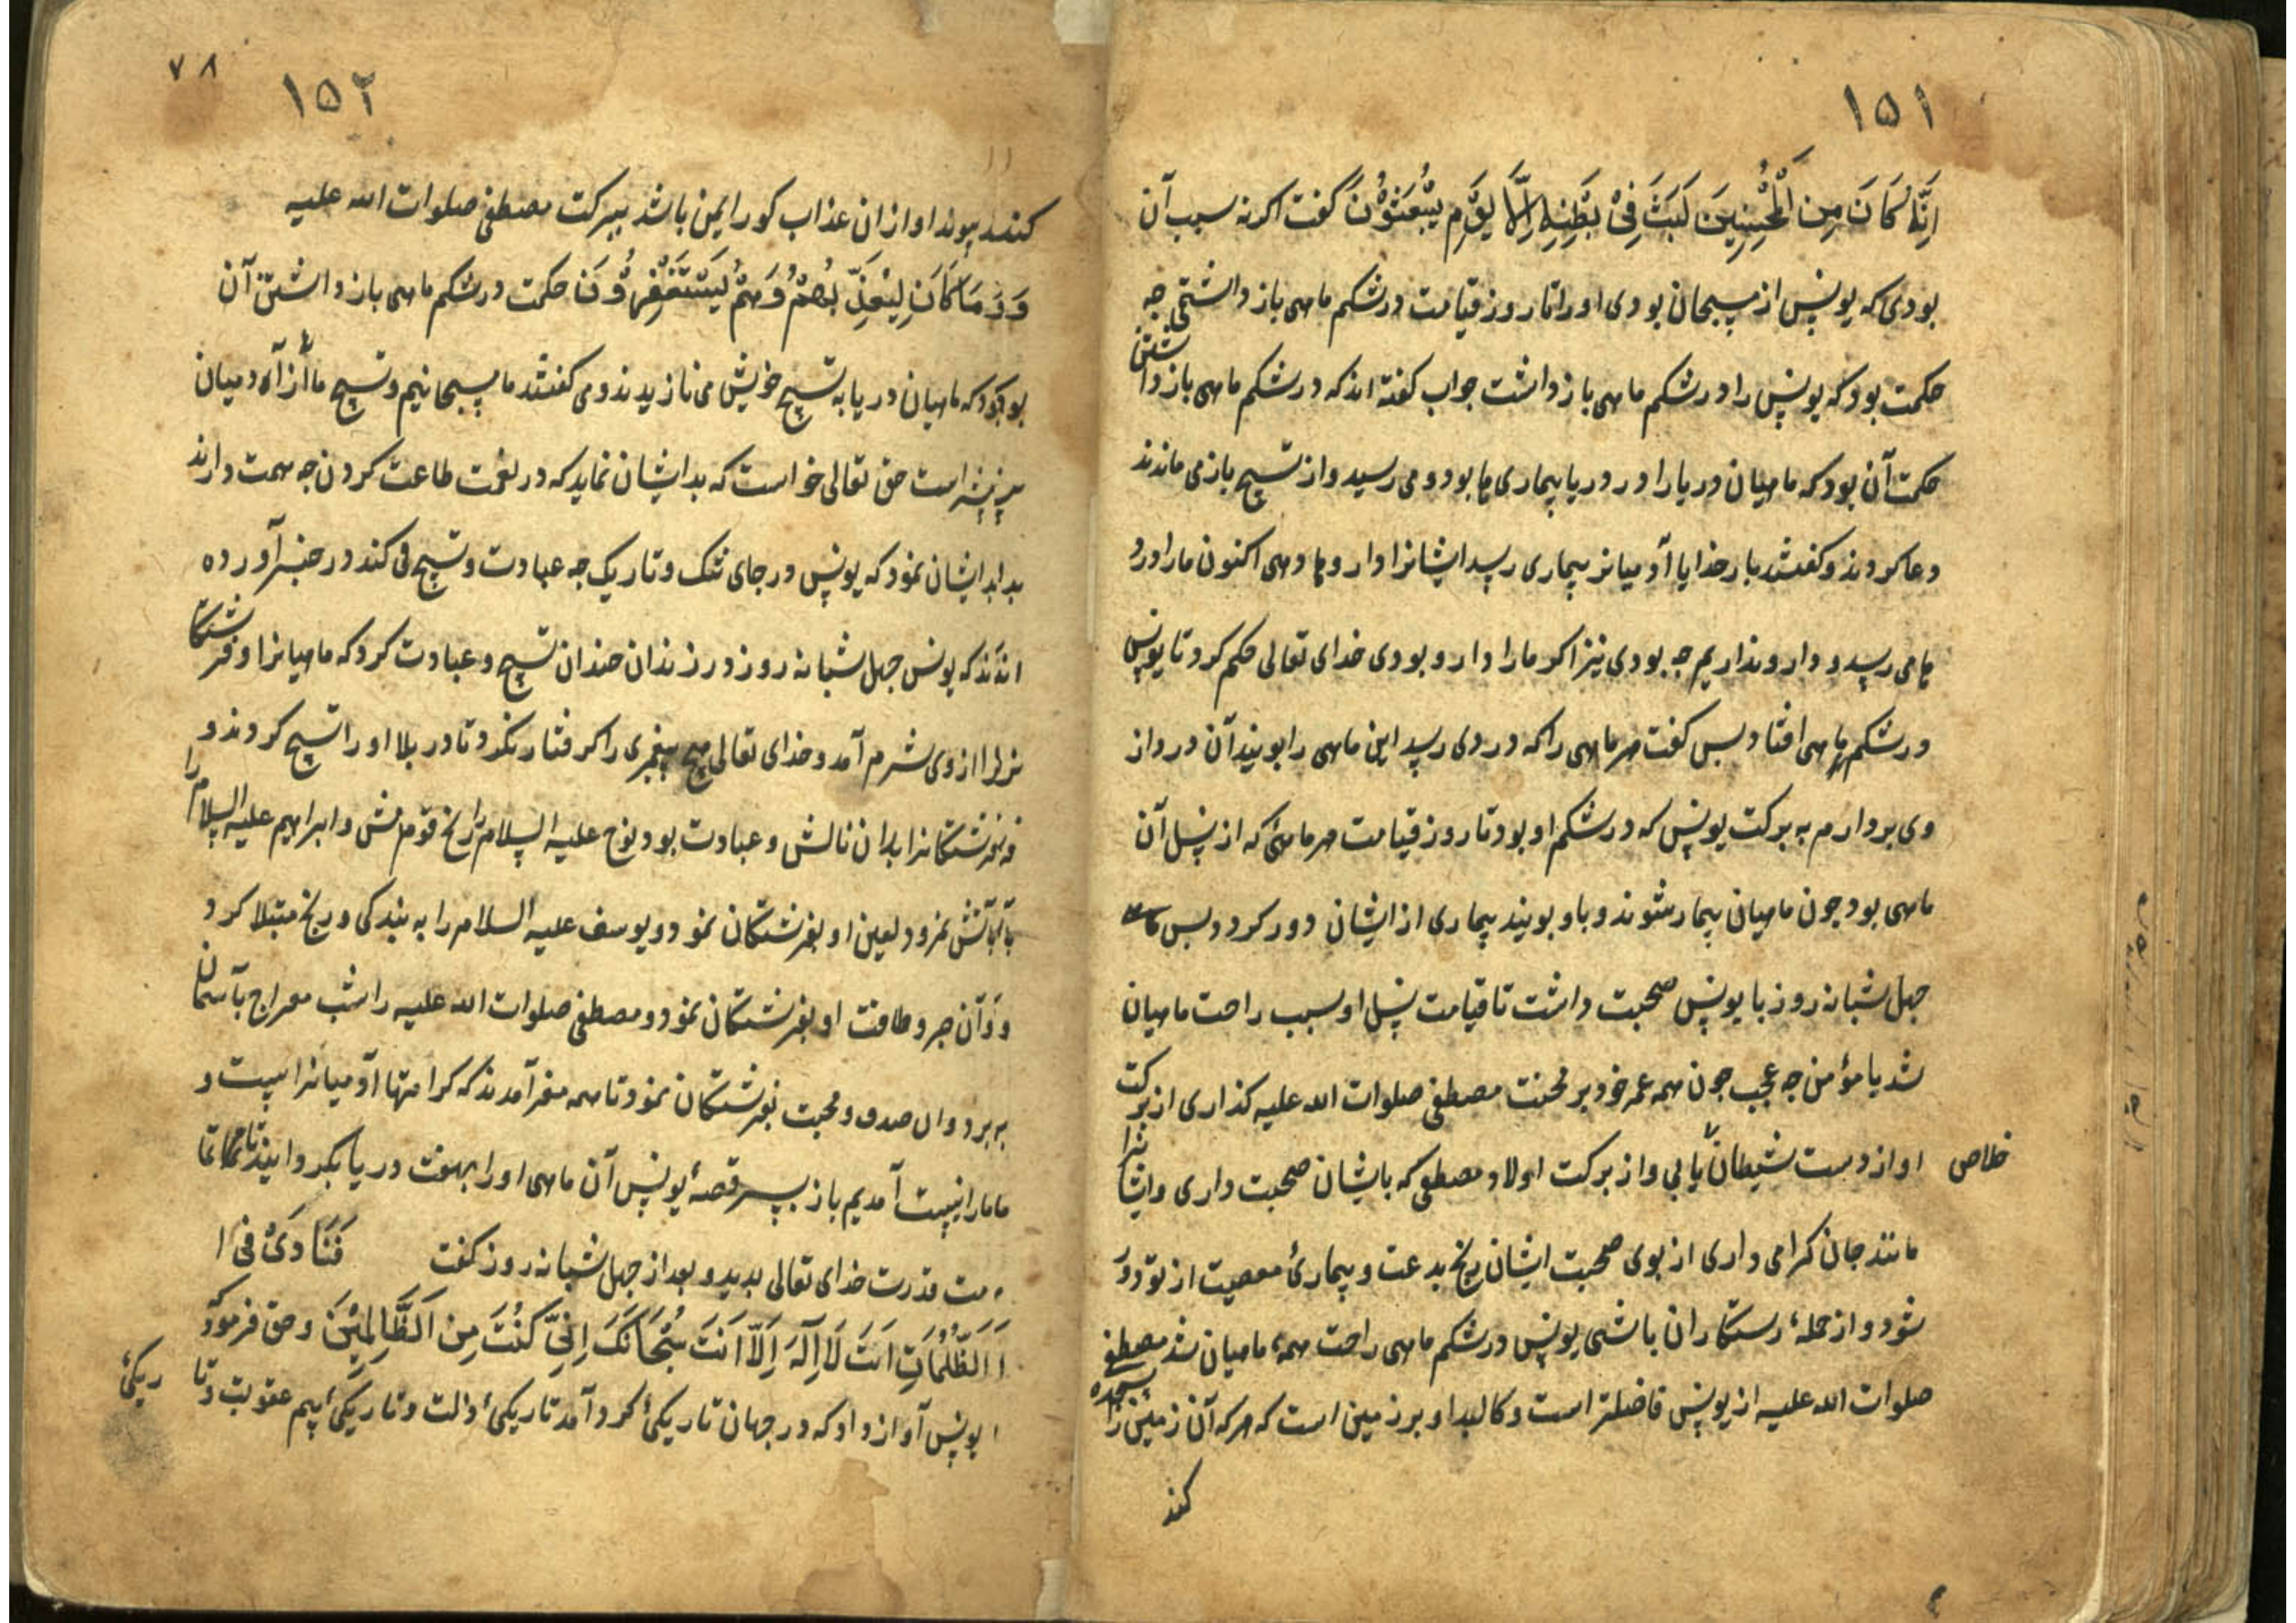 ۱۵۱
اِنَّهُ كَانَ مِنَ الْمُحْسِنِينَ لَبِثَ فِي بَطْنِهِ اِلَّا يَوْمِ يُبْعَثُوْنَ گفت اگر نه سبب آن
بودی که یونس از مسبحان بودی او را تا روز قیامت در شکم ماهی باز داشتی چه
حکمت بود که یونس را در شکم ماهی باز داشت جواب گفته اند که در شکم ماهی باز داشتن
حکمت آن بود که ماهیان دریا را در دریا بیماری ها بود و می رسید و از تسبیح باز می ماندند
دعا کردند و گفتند بار خدایا آدمیانرا بیماری رسد ایشانرا دارو ها دهی اکنون ما را درد
ها می رسد و دارو نداریم چه بودی نیز اگر ما را دارو بودی خدای تعالی حکم کرد تا یونس
در شکم ماهی افتاد بس گفت هر ماهی را که دردی رسد این ماهی را بویند آن درد از
وی بردارم به برکت یونس که در شکم او بود تا روز قیامت هر ماهئی که از نسل آن
ماهی بود چون ماهیان بیمار شوند و باو بویند بیماری از ایشان دور گردد بس ماهی
چهل شبانه روز با یونس صحبت داشت تا قیامت نسل او سبب راحت ماهیان
شد یا مؤمن چه عجب چون همه عمر خود بر محبت مصطفی صلوات الله علیه گذاری از برکت
او از دست شیطان خلاص یابی و از برکت اولاد مصطفی که بایشان صحبت داری و ایشانرا
مانند جان گرامی داری از بوی صحبت ایشان رنج بدعت و بیمارئ معصیت از تو دور
شود و از جملهٔ رستگاران باشی یونس در شکم ماهی راحت همهٔ ماهیان شد مصطفی
صلوات الله علیه از یونس فاضلتر است و کالبد او بر زمین است که هر که آن زمین را سجده
کند
۷۸
۱۵۲
کنند او از ان عذاب کور ایمن باشد ببرکت مصطفی صلوات الله علیه
وَ مَا كَانَ لِيُعَذِّ بُهُمْ وَهُمْ يَسْتَغْفِرُوْنَ حکمت در شکم ماهی باز داشتن آن
بود که ماهیان دریا به تسبیح خویش می نازیدند و می گفتند ما مسبحانیم و تسبیح ما از آدمیان
بیشتر است حق تعالی خواست که بدایشان نماید که در نعمت طاعت کردن چه همت دارند
بدایشان نمود که یونس در جای تنک و تاریک چه عبادت و تسبیح می کند در خبر آورده
اند که یونس چهل شبانه روز در زندان چندان تسبیح و عبادت کرد که ماهیانرا و فرشتکا
نرا از وی شرم آمد و خدای تعالی هیچ پیغمبری را گرفتار نکرد تا در بلا او را تسبیح کردند و
فرشتکانرا بدان نالش و عبادت بود نوح علیه السلام را رنج قومش و ابراهیم علیه السلام را
بآتش نمرود لعین او بفرشتکان نمود و یوسف علیه السلام را به بندکی و رنج مبتلا کرد
و آن صبر و طاقت او بفرشتکان نمود و مصطفی صلوات الله علیه را شب معراج بآسمان
به برد و ان صدق و محبت بفرشتکان نمود تا همه مقر آمدند که کرامتها آدمیانرا است و
ما را نیست آمدیم باز بسر قصهٔ یونس آن ماهی او را بهفت دریا بکردانید تا
قدرت خدای تعالی بدید و بعد از چهل شبانه روز کفت فَنَادَىٰ فِي ا
اَلظُّلُمَاتِ اَنْتَ لَا اِلٰهَ اِلَّا اَنْتَ سُبْحَانَكَ اِنِّي كُنْتُ مِنَ الظَّالِمِيْنَ و حق فرمود که
یونس آواز داد که در جهان تاریکئ گرد آمد تاریکئ ذلت و تاریکئ بیم عقوبت و تا ریکئ